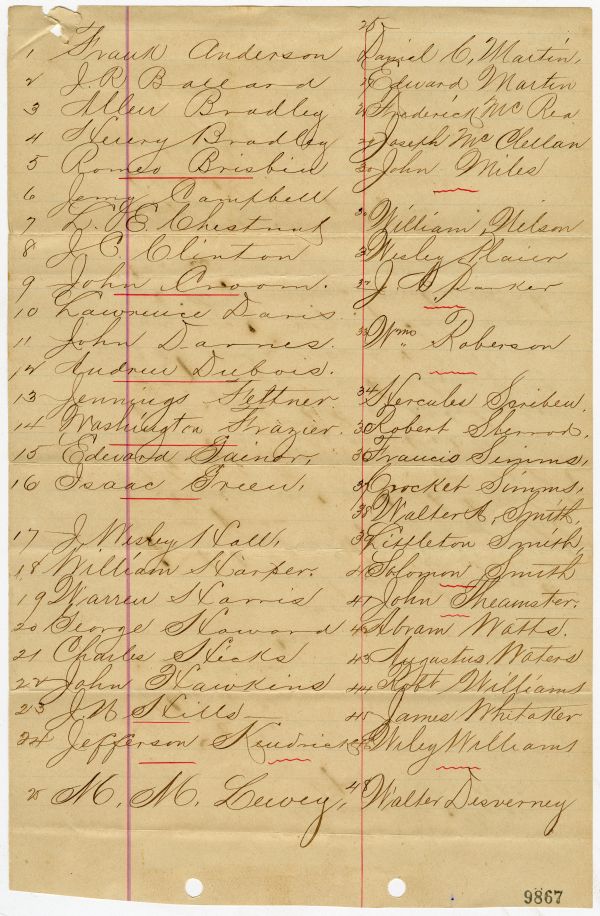 1 Frank Anderson
2 J. R. Ballard
3 Allen Bradley
4 Henry Bradley
5 Romeo Brisbin
6 Campbell
7 E. Chestnut
8 J. C. Clinton
9 John Croom.
10 Lawrence Davis
11 John Darnes.
12 Andrew Dubois.
13 Jennings Fettner.
14 Washington Frazier.
15 Edward Gainor,
16 Isaac Green,
17 J. Wesley Hall,
18 William Harper.
19 Warren Harris
20 George Howard
21 Charles Hicks
22 John Hawkins
23 J. N. Hills
24 Jefferson Kendrick
25 M. M. Lewey,
25
Daniel C. Martin,
Edward Martin
Frederick McRea
Joseph McClellan
30 John Miles
William Nelson
Wesley
J. Parker
Wm Roberson
34 Hercules
Robert Sherrod,
Francis Simms,
Crocket Simms,
38 Walter A. Smith,
39 Littleton Smith,
Solomon Smith
41 John Theamster.
Abram Watts.
43 Augustus Waters
44 Robt Williams
James Whitaker
Wiley Williams
Walter Desverney
9867